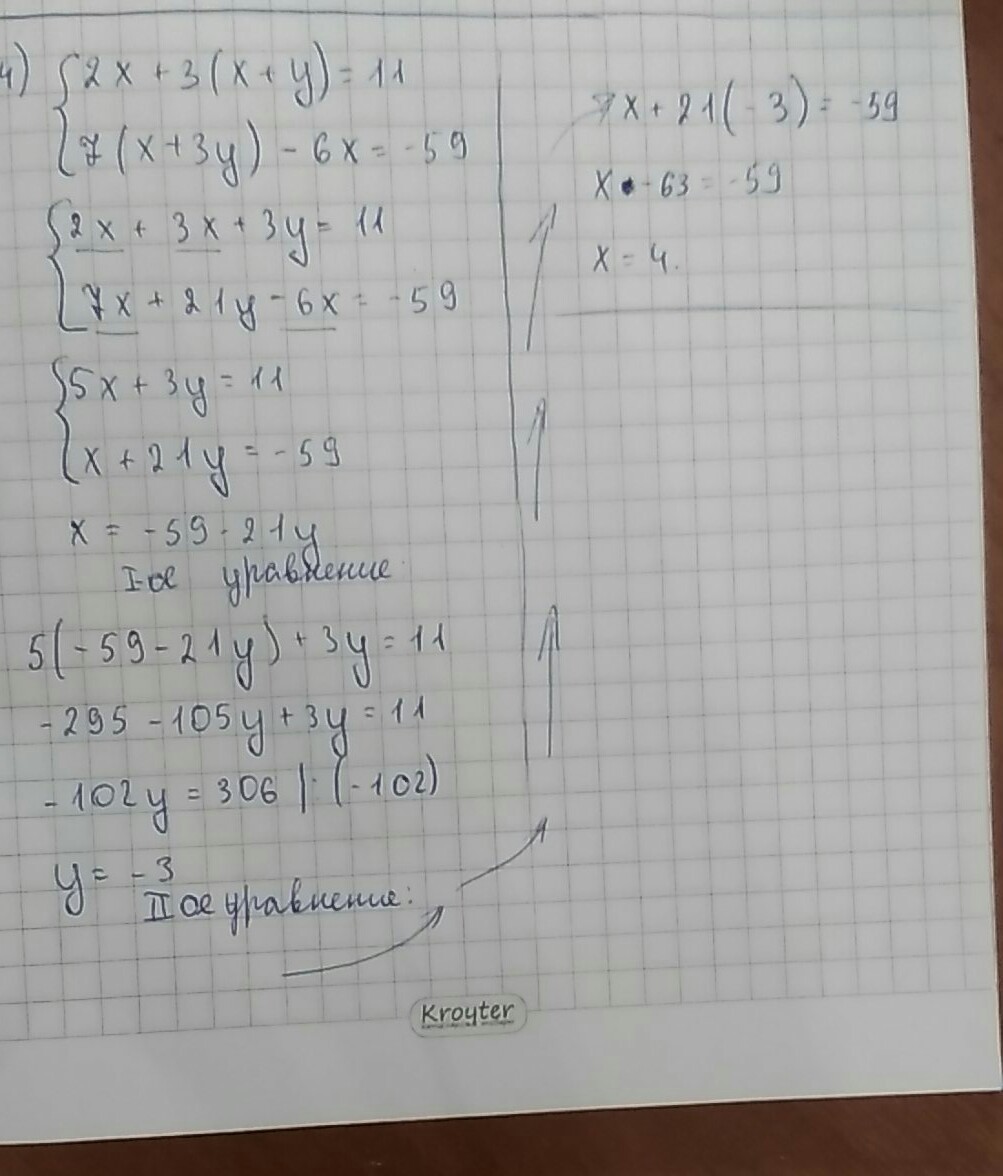 4) 2x + 3(x + y) = 11
7(x + 3y) - 6x = -59
2x + 3x + 3y = 11
7x + 21y - 6x = -59
5x + 3y = 11
x + 21y = -59
x = -59 - 21y
I-ое уравнение
5(-59 - 21y) + 3y = 11
-295 - 105y + 3y = 11
-102y = 306 |: (-102)
y = -3
II ое уравнение:
x + 21(-3) = -59
x - 63 = -59
x = 4.
Kroyter